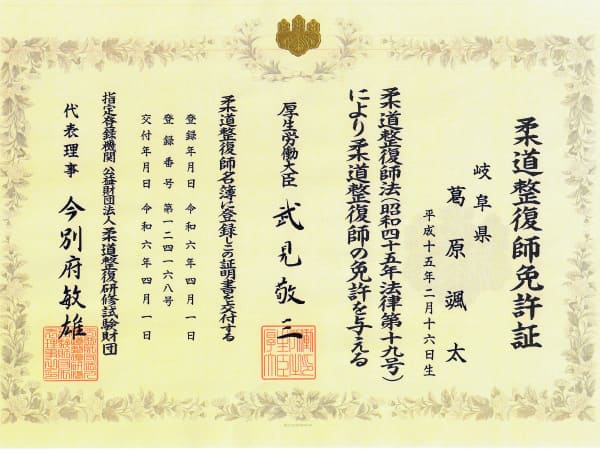 柔道整復師免許証
岐阜県
葛原颯太
平成十五年二月十六日生
柔道整復師法(昭和四十五年法律第十九号)
により柔道整復師の免許を与える
厚生労働大臣 武見敬三
柔道整復師名簿に登録しこの証明書を交付する
登録年月日 令和六年四月一日
登録番号 第一二四一六八号
交付年月日 令和六年四月一日
指定登録機関 公益財団法人柔道整復研修試験財団
代表理事 今別府敏雄